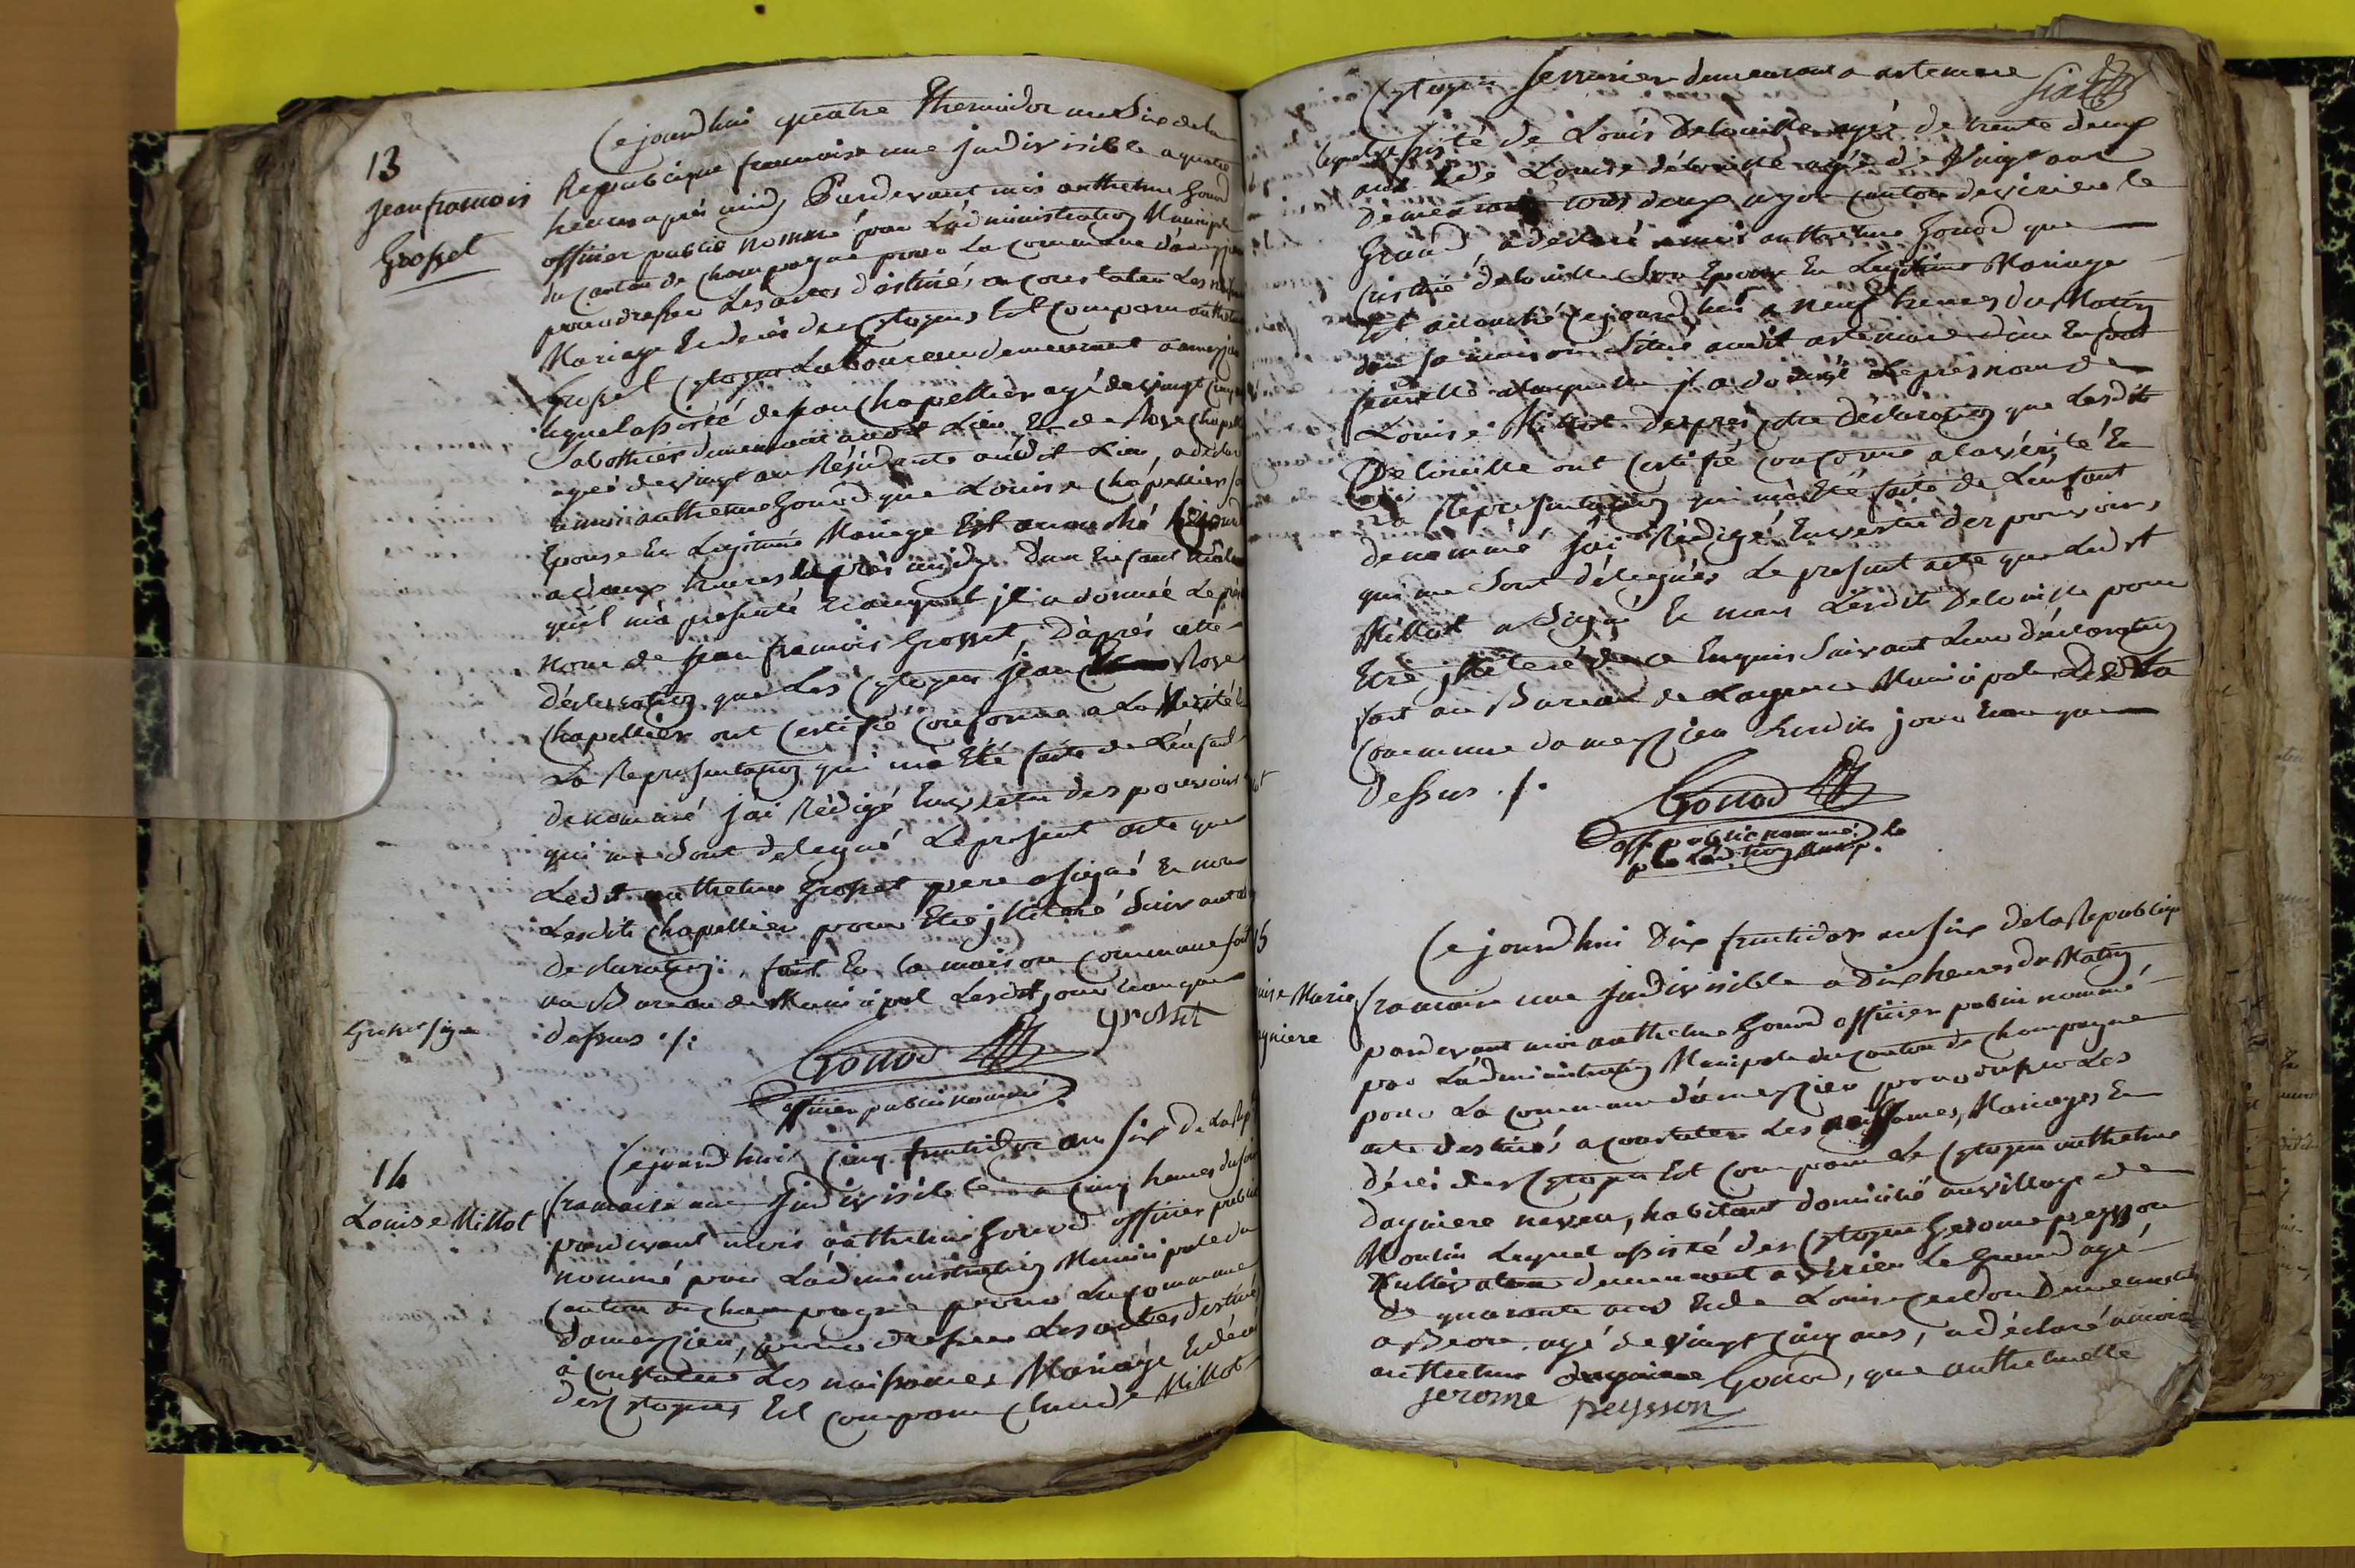 13
jean francois
Grosset
Cejourdhui quatre Thermidor an Six de la
Republique francoise une jndivisible a quatre
heures apres midy Pardevant moi anthelme Gonod
officier public nommé pour Ladministration Municipale
du Canton de Champagne pour La Commune dameyzieu
pour dresser Les actes destinés a constater Les
Mariage Et deces des Citoyens Est Comparu anthelme
Grosset Citoyen Laboureur demeurant a ameyzieu
lequel assisté de jean Chapellier agé de vingt cinq
Sabothier demeurant audit Lieu Et de Rose Chapell
agée de vingt an Résidante audit Lieu, a déclaré
a moi anthelme Gonod que Louise Chapellier
Epouse En Legitime Mariage Est accouché
a deux heures dapres midy dun Enfant male
quil ma presenté Et auquel jl a donné Le pré
nom de jean francois Grosset, Daprès cette
déclaration que Les Citoyens jean Rose
Chapellier ont Certifié conforme a La Vérité
La Représentation qui ma Eté faite de Lenfant
denommé jai Rédigé En vertu des pouvoirs
qui me Sont delegué Le present acte que
Ledit anthelme Grosset pere a signé Et non
Lesdits Chapellier pour Etre jlliteré Suivant
declaration. fait En la maison Commune
au Bureau de Municipal Lesdit jour Et an que
dessus ./.
Grosset signe
Grosset
Gonod
officier public nommé
14
Louise Millot
Cejourdhui Cinq fructidor an Six de La Rep
francaise une Jndivisible a Cinq heures du soir
pardevant moi anthelme Gonod officier public
nommé pour Ladministration Municipale du
Canton de Champagne pour La Commune
dameyzieu, pour dresser Les actes destinés
à Constater Les naissances Mariage Et décés
des Citoyens Est comparu Claude Millot
Citoyen Serrurier demeurant a artemare
lequel assisté de Louis Delouille agé de trente deux
ans Et de Louise délouille agée de Vingt ans
Demeurant tous deux a yon Canton de virieu le
Grand, a declaré a moi anthelme Gonod que
delouille Son Epouse En Legitime Mariage
Est accouché Cejourdhui a neuf heures du Matin
dans sa maison Situé audit artemare dun Enfant
femelle a laquelle jl a donné Le prénom de
Louise Millot Daprès cette déclaration que Lesdits
Delouille ont Certifié conforme a la vérité Et
La Représentation qui ma Eté faite de Lenfant
denommé jai Rédigé En vertu des pouvoirs
qui me Sont délégués Le present acte que Ledit
Millot a Signé Et non Lesdits Delouille pour
Etre jlliteré de ce Enquis Suivant Leur déclaration
fait au Bureau de Lagence Municipale de La
Commune dameyzieu Lesdits jour Et an que
Dessus ./.
Gonod
off public nommé
Cejourdhui Dix fructidor an Six de la Republique
Marie
francaise une Jndivisible a Dix heures du Matin
pardevant moi anthelme Gonod officier public nommé
par Ladministration Municipale du Canton de Champagne
pour La Commune dameyzieu pour dresser Les
acte destinés a Constater Les naissances, Mariages Et
décés des Citoyen Est Comparu Le Citoyen anthelme
dagniere neveu, habitant domicilié au village de
Moulin Lequel assisté des Citoyen Gerome peysson
Cultivateur demeurant a virieu Le Grand agé
de quarante ans Et de Louise Demeurant
a Beon agé de vingt Cinq ans, a déclaré a moi
anthelme Gonod, que anthelmette
jerome peysson